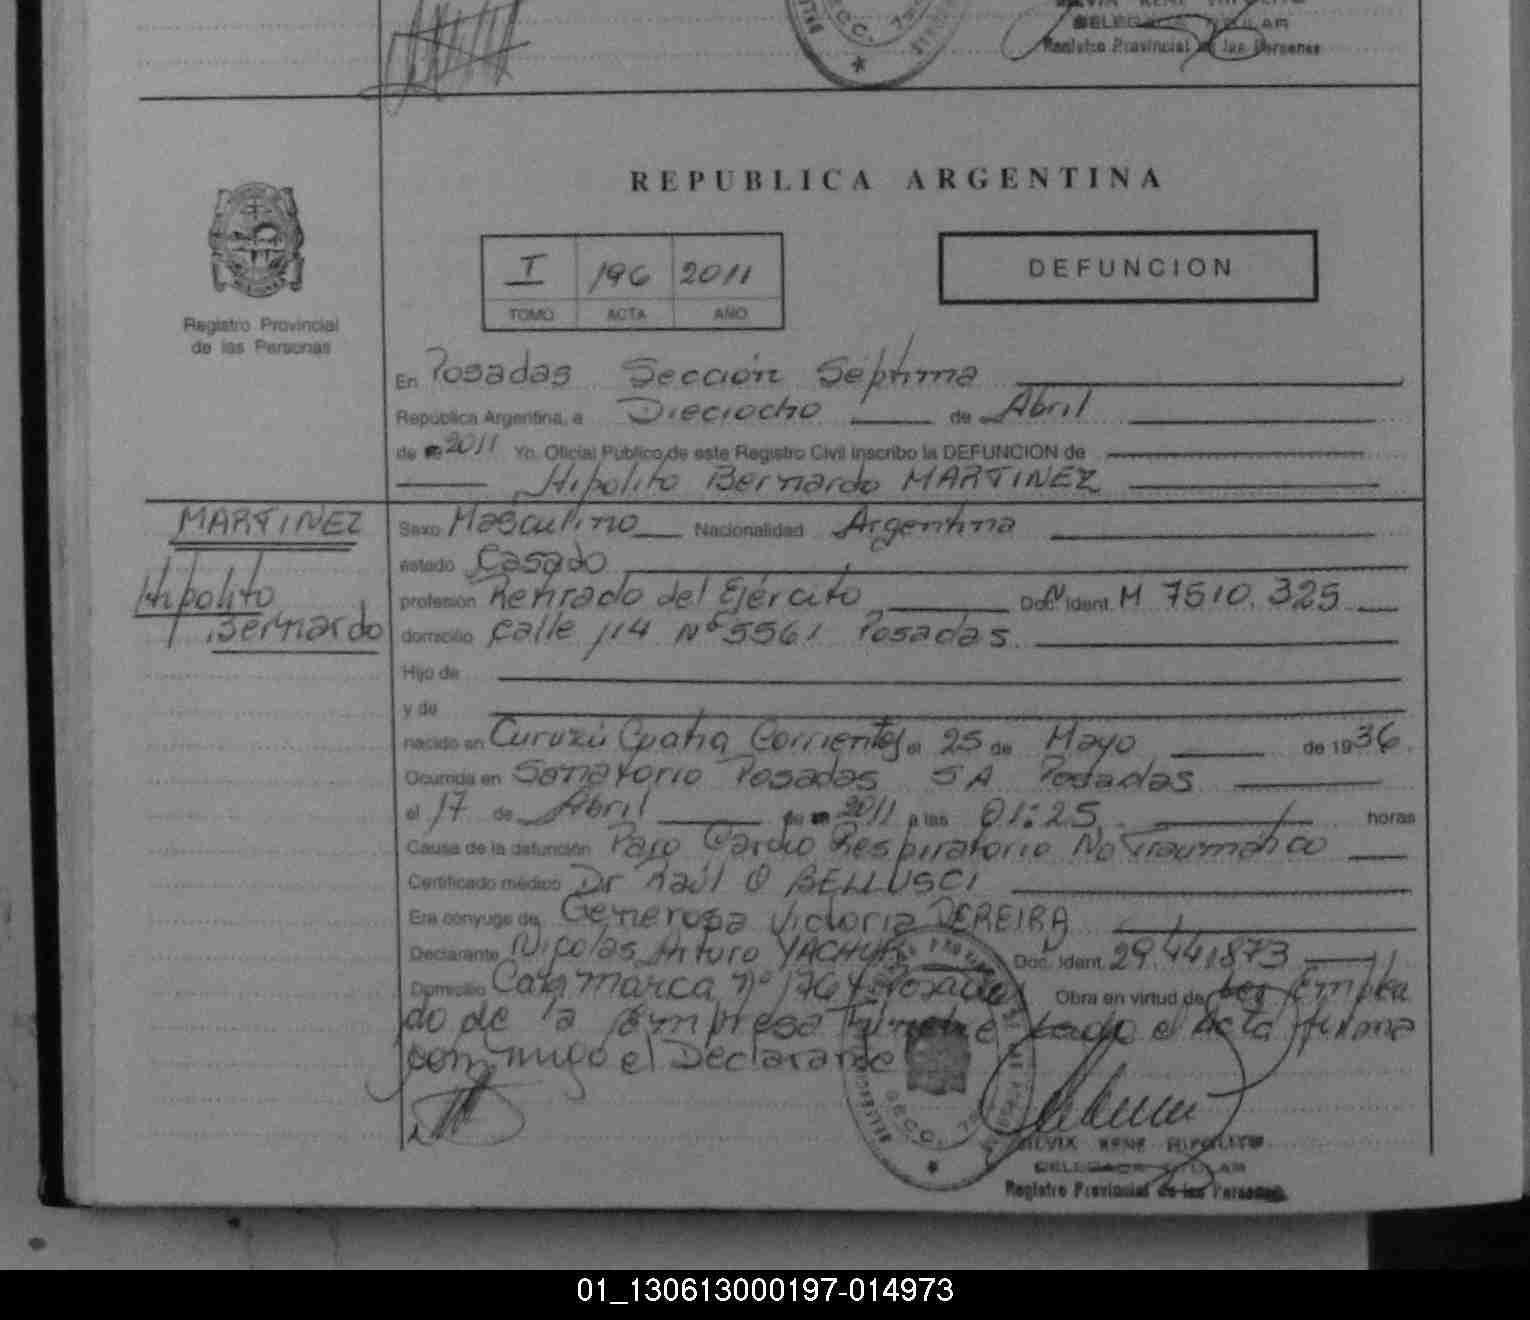 Registro Provincial de las Personas
REPUBLICA ARGENTINA
I 196 2011
TOMO ACTA AÑO
DEFUNCION
Registro Provincial
de las Personas
En Posadas Sección Séptima
República Argentina, a Dieciocho de Abril
de 2011 Yo, Oficial Público, de este Registro Civil inscribo la DEFUNCION de
Hipolito Bernardo MARTINEZ
MARTINEZ
Hipolito
Bernardo
Sexo Masculino Nacionalidad Argentina
estado Casado
profesión Retirado del Ejército Doc. Ident. M 7510.325
domicilio Calle 114 Nº 5561 Posadas
Hijo de
y de
nacido en Curuzú Cuatia Corrientes el 25 de Mayo de 1936
Ocurrida en Sanatorio Posadas SA Posadas
el 17 de Abril de 2011 a las 01:25 horas
Causa de la defunción Paro Cardio Respiratorio No Traumático
Certificado médico Dr Raúl O BELLUSCI
Era cónyuge de Generosa Victoria PEREIRA
Declarante Nicolas Arturo Doc. Ident. 29.441.873
Domicilio Catamarca nº 1764 Posadas Obra en virtud de Ser Emplea
do de la Empresa Fúnebre Leido el Acta firma
conmigo el Declarante
SILVIA RENE HIPOLITO
Registro Provincial de las Personas
01_130613000197-014973